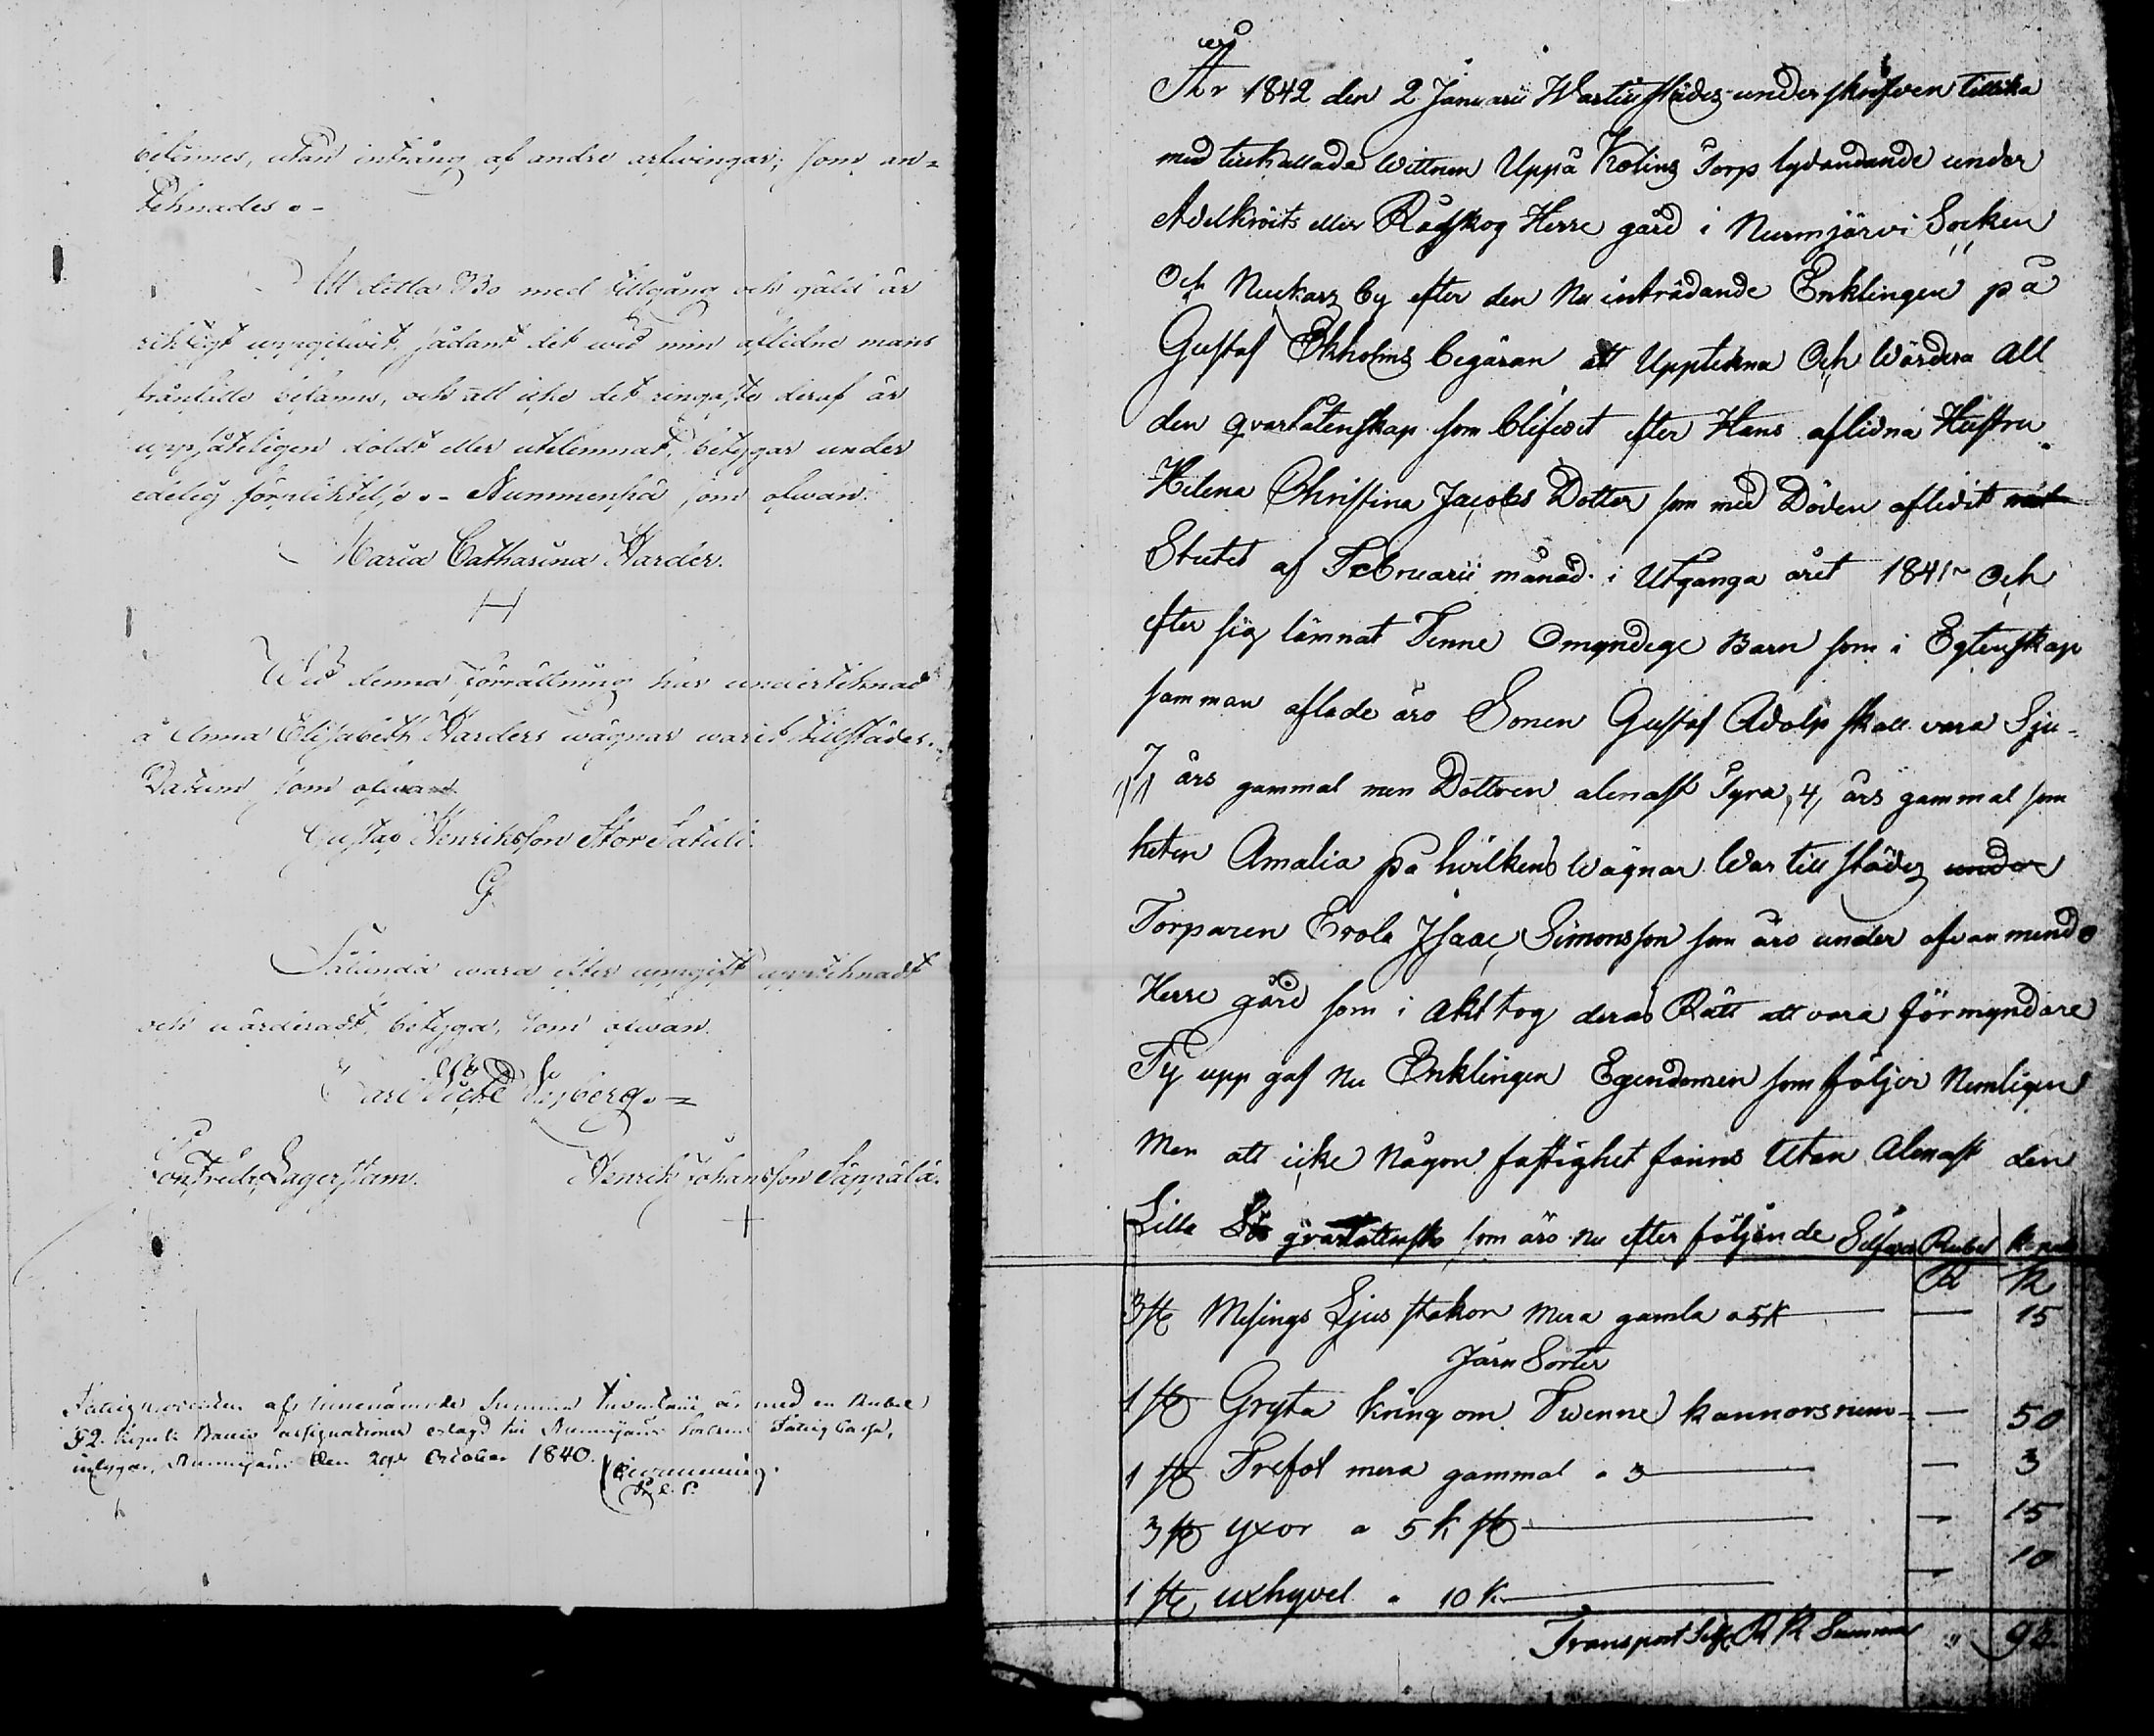 behinnes, utan intrång af andre arfvingar; som an=
teknades.-
Att detta Bo med tillgång och gäld är
riktigt uppgifwit, sådant det wid min aflidne mans
frånfälle befanns, och att icke det ringaste deraf är
uppsåteligen doldt eller utelemnat, betygar under
edelig förpliktelse.- Nummenpää som ofwan.
Maria Catharina Harder.
H
Wid denna förrättning har undertecknad
å Anna Elisabeth Harders wägnar warit tillstädes.
Datum som ofwan
Gustav Henriksson Stor Satuli.
G
Sålunda wara efter uppgift upptecknadt
och wärderadt, betyga, som ofwan.
Fredr. Lagerstam. Henrik Johansson Säppälä.
+
af innenämnde Summa är med en Rubel
52. Kopek Banco assignationer erlagd till Nurmijärvi Sockens Fattig Cassa,
Nurmijärvi den October 1840.
År 1842 den 2 Januarii War tillstädes underskrifven tillika
med tillkallade Wittnen Uppå Kolins Torp lydandande under
Adelkroits eller Rågskog Herre gård i Nurmjärvi Socken
Och Nuckars by efter den Nu inträdande Enklingen på
Gustaf Ekholms begäran att Upptekna Och Wärdera all
den qvarlåtenskap som blifvet efter Hans aflidna Hustru
Helena Christina Jacobs Dotter som med Döden aflidit
Slutet af Februarii månad i Utganga året 1841 Och
efter sig lämnat Tenne Omyndege Barn som i Egtenskap
samman aflade äro Sonen Gustaf Adolf skall vara Sju=
7 års gammal men Dottren alenast Fyra, 4, års gammal som
heter Amalia på hvilkens Wägnar War till städes under
Torparen Erola Isaac Simonsson som äro under ofvan mende
Herre gård som i akt tog deras Rätt att vara förmyndare
Ty upp gaf nu Enklingen Egendomen som följer Nemligen
Men att icke Någon fastighet finns Utan Alenast den
Lilla qvarlåtensk som äro nu efter följande Silfver Rubel Kopek
R K
3 st Mesings Ljus stakor Mera gamla a 5 K — — 15
Järn Sorter
1 st Gryta kring om Twenne kannors rum - — 50
1 st Trefot mera gammal a 3 — — 3
3 st yxor a 5 k st — — 15
1 st uxhyvel a 10 K — — 10
Transport Silf R K Summa " 93